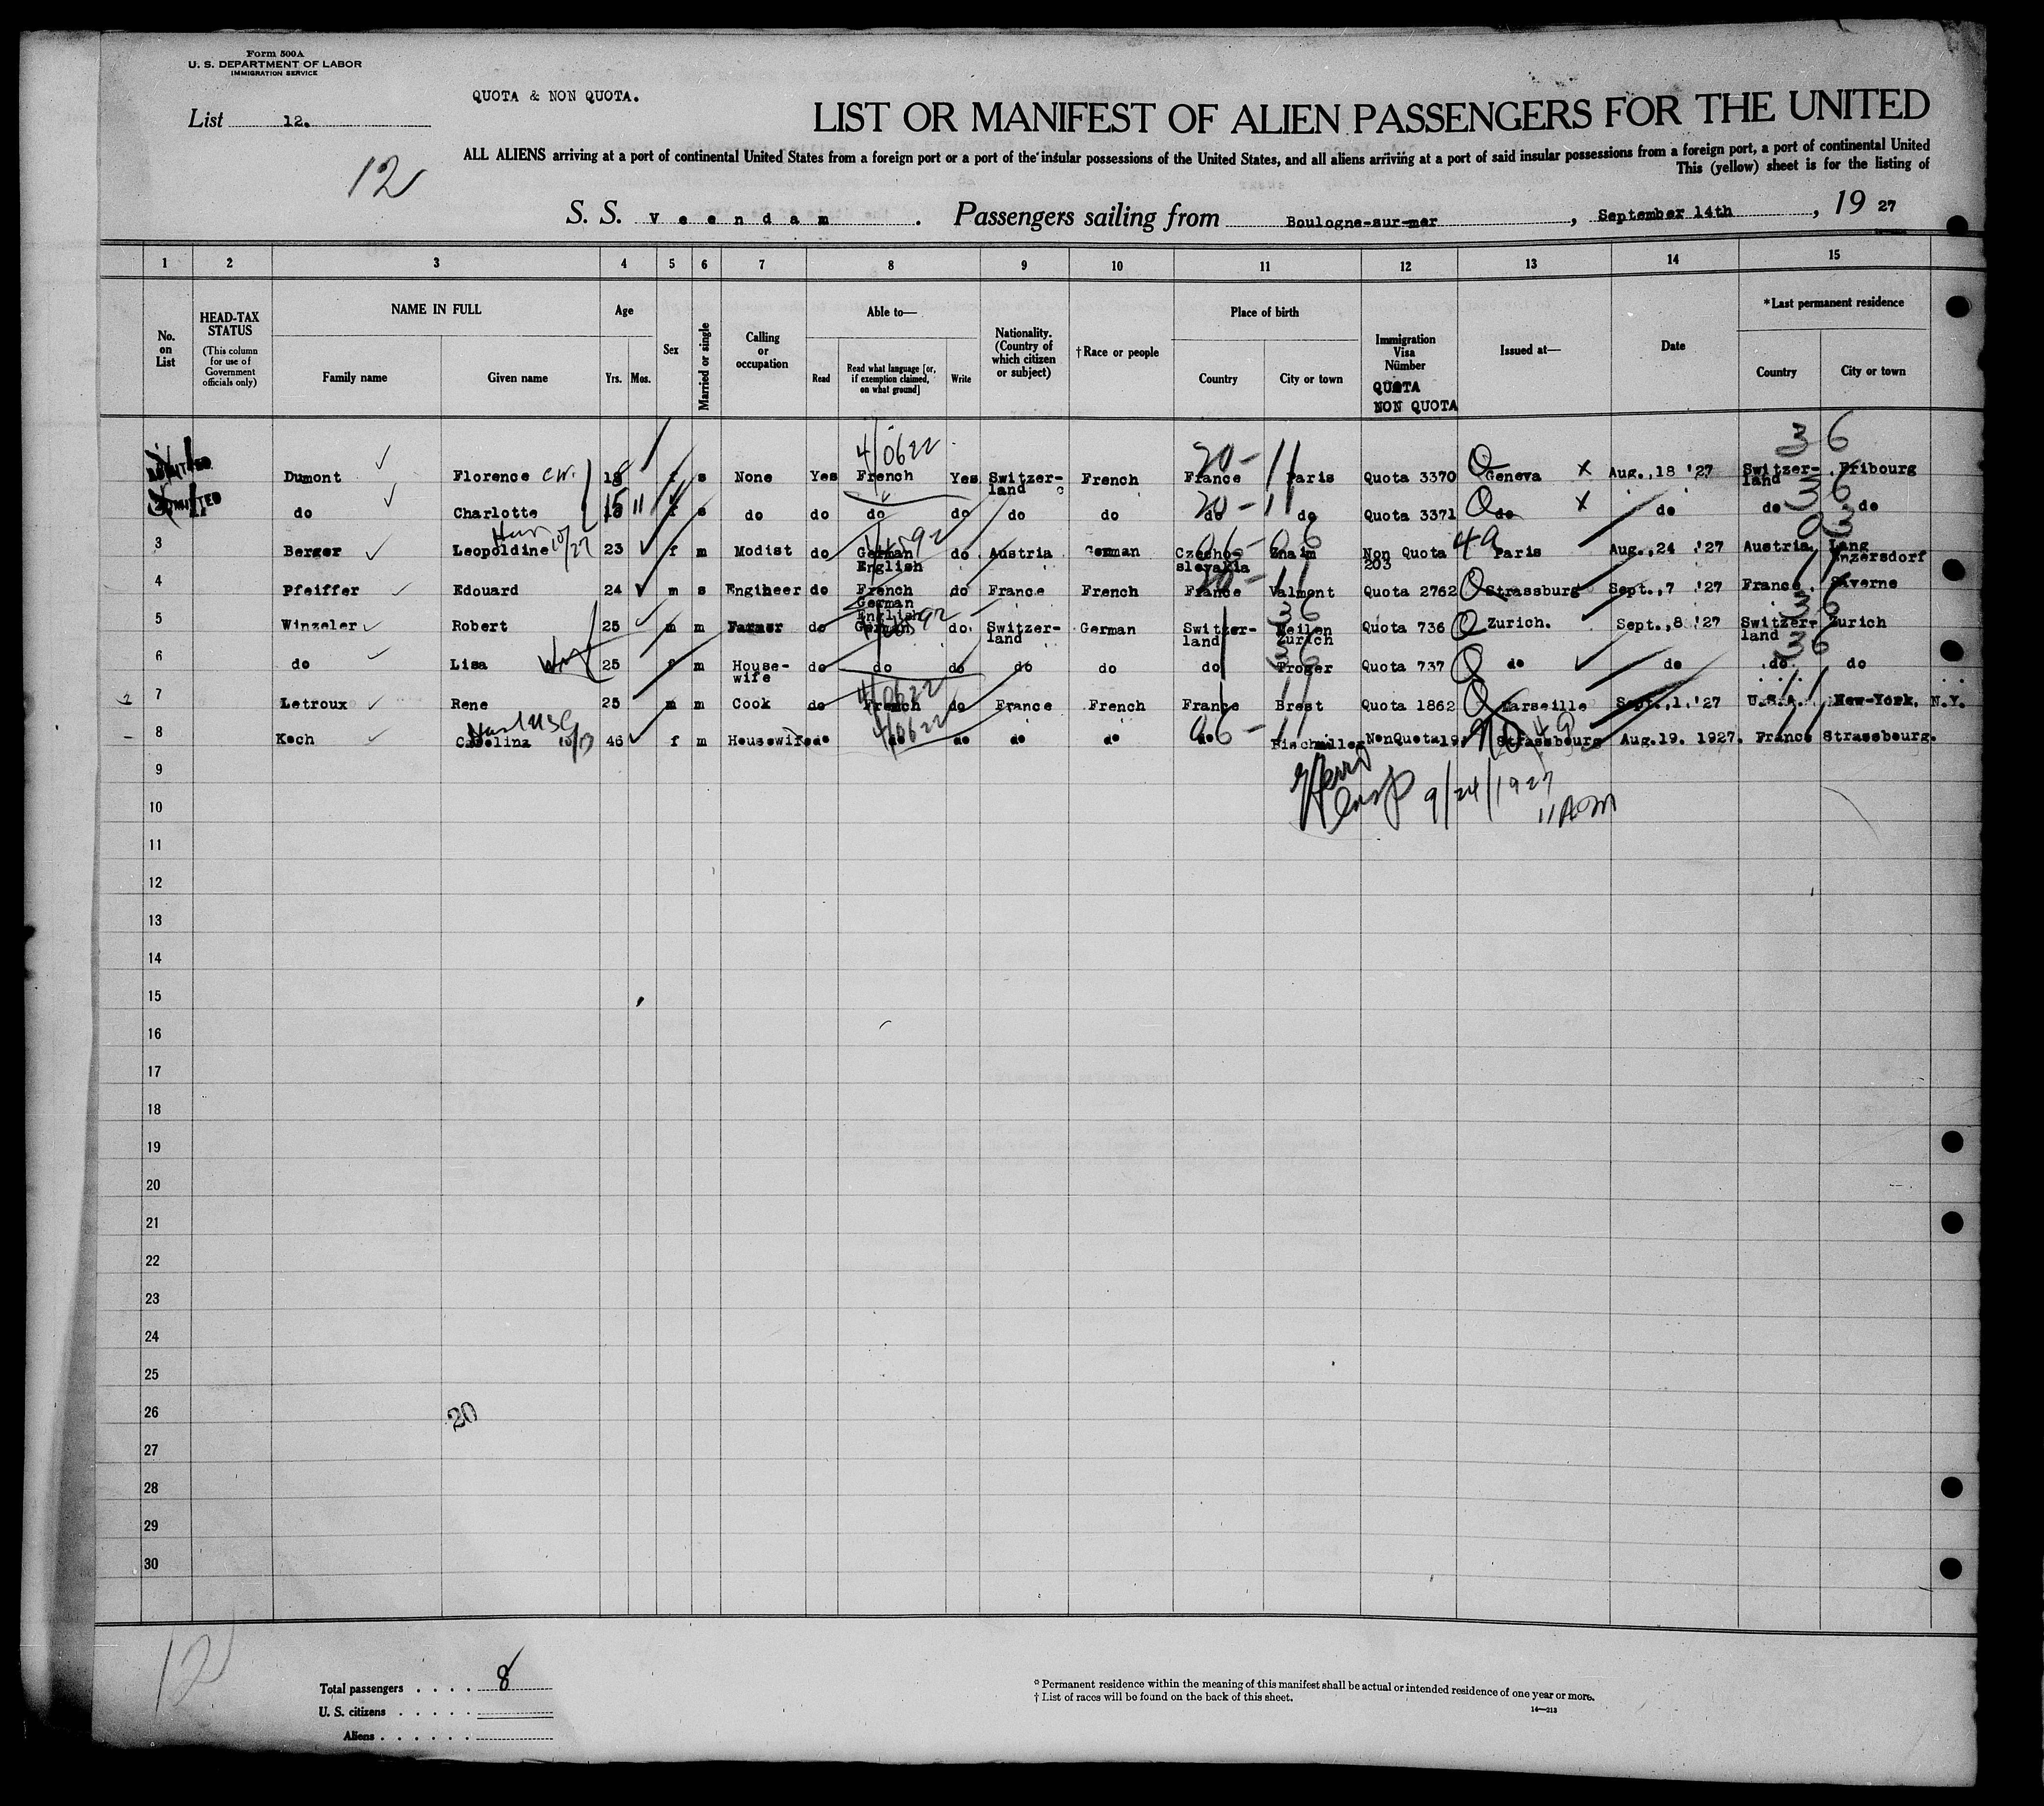 Form 500A
U. S. DEPARTMENT OF LABOR
IMMIGRATION SERVICE
QUOTA & NON QUOTA.
List 12.
12
LIST OR MANIFEST OF ALIEN PASSENGERS FOR THE UNITED
ALL ALIENS arriving at a port of continental United States from a foreign port or a port of the insular possessions of the United States, and all aliens arriving at a port of said insular possessions from a foreign port, a port of continental United
This (yellow) sheet is for the listing of
S. S. Veendam. Passengers sailing from Boulogne-sur-mer, September 14th, 19 27
1 2 3 4 5 6 7 8 9 10 11 12 13 14 15
No. on List
HEAD-TAX STATUS (This column for use of Government officials only)
NAME IN FULL Family name Given name
Age Yrs. Mos.
Sex
Married or single
Calling or occupation
Able to— Read Read what language [or, if exemption claimed, on what ground] Write
Nationality. (Country of which citizen or subject)
†Race or people
Place of birth Country City or town
Immigration Visa Number QUOTA NON QUOTA
Issued at—
Date
*Last permanent residence Country City or town
4/0622 20- 11 36
ADMITTED Dumont Florence 18 f s None Yes French Yes Switzer-land French France Paris Quota 3370 Geneva x Aug.,18 '27 Switzer-land Fribourg
20- 11 36
ADMITTED do Charlotte 15 11 f s do do do do do do do do Quota 3371 do x do do do
3 Berger Leopoldine 10/27 23 f m Modist do German English do Austria German Czecho-slovakia Znaim Non Quota 203 Paris Aug.,24 '27 Austria Lang Enzersdorf
20- 11
4 Pfeiffer Edouard 24 m s Engineer do French German English do France French France Valmont Quota 2762 Strassburg Sept.,7 '27 France Saverne
36
5 Winzeler Robert 25 m m Farmer do German do Switzer-land German Switzer-land Meilen Zurich Quota 736 Zurich. Sept.,8 '27 Switzer-land Zurich
36
6 do Lisa 25 f m House-wife do do do do do do Troger Quota 737 do do do do
4/0622 11
7 Letroux Rene 25 m m Cook do French do France French France Brest Quota 1862 Marseille Sept.,1.'27 U.S.A. New-York, N.Y.
4/0622
8 Koch Carolina 46 f m Housewife do do do do do do Bischmiller NonQuota19 Strassbourg Aug.19. 1927. France Strassbourg.
9
9/24/1927
10
11 AM
11
12
13
14
15
16
17
18
19
20
21
22
23
24
25
26
20
27
28
29
30
12
Total passengers . . . . 8
U. S. citizens . . . . .
Aliens . . . . . .
* Permanent residence within the meaning of this manifest shall be actual or intended residence of one year or more.
† List of races will be found on the back of this sheet.
14—213